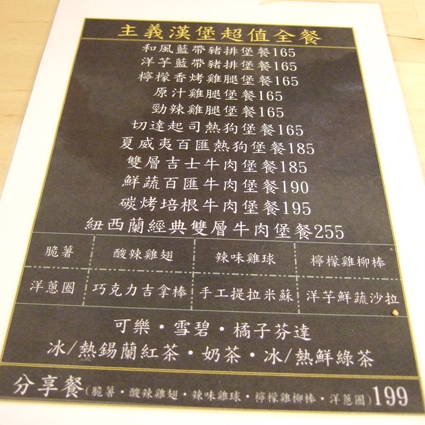 主義漢堡超值全餐
和風藍帶豬排堡餐165
洋芋藍帶豬排堡餐165
檸檬香烤雞腿堡餐165
原汁雞腿堡餐165
勁辣雞腿堡餐165
切達起司熱狗堡餐165
夏威夷百匯熱狗堡餐185
雙層吉士牛肉堡餐185
鮮蔬百匯牛肉堡餐190
碳烤培根牛肉堡餐195
紐西蘭經典雙層牛肉堡餐255
脆薯 酸辣雞翅 辣味雞球 檸檬雞柳棒
洋蔥圈 巧克力吉拿棒 手工提拉米蘇 洋芋鮮蔬沙拉
可樂·雪碧·橘子芬達
冰/熱錫蘭紅茶·奶茶·冰/熱鮮綠茶
分享餐(脆薯·酸辣雞翅·辣味雞球·檸檬雞柳棒·洋蔥圈)199